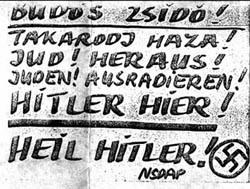 BÜDÖS ZSIDÓ!
TAKARODJ HAZA!
JUD! HERAUS!
JUDEN! AUSRADIEREN!
HITLER HIER!
HEIL HITLER!
NSDAP